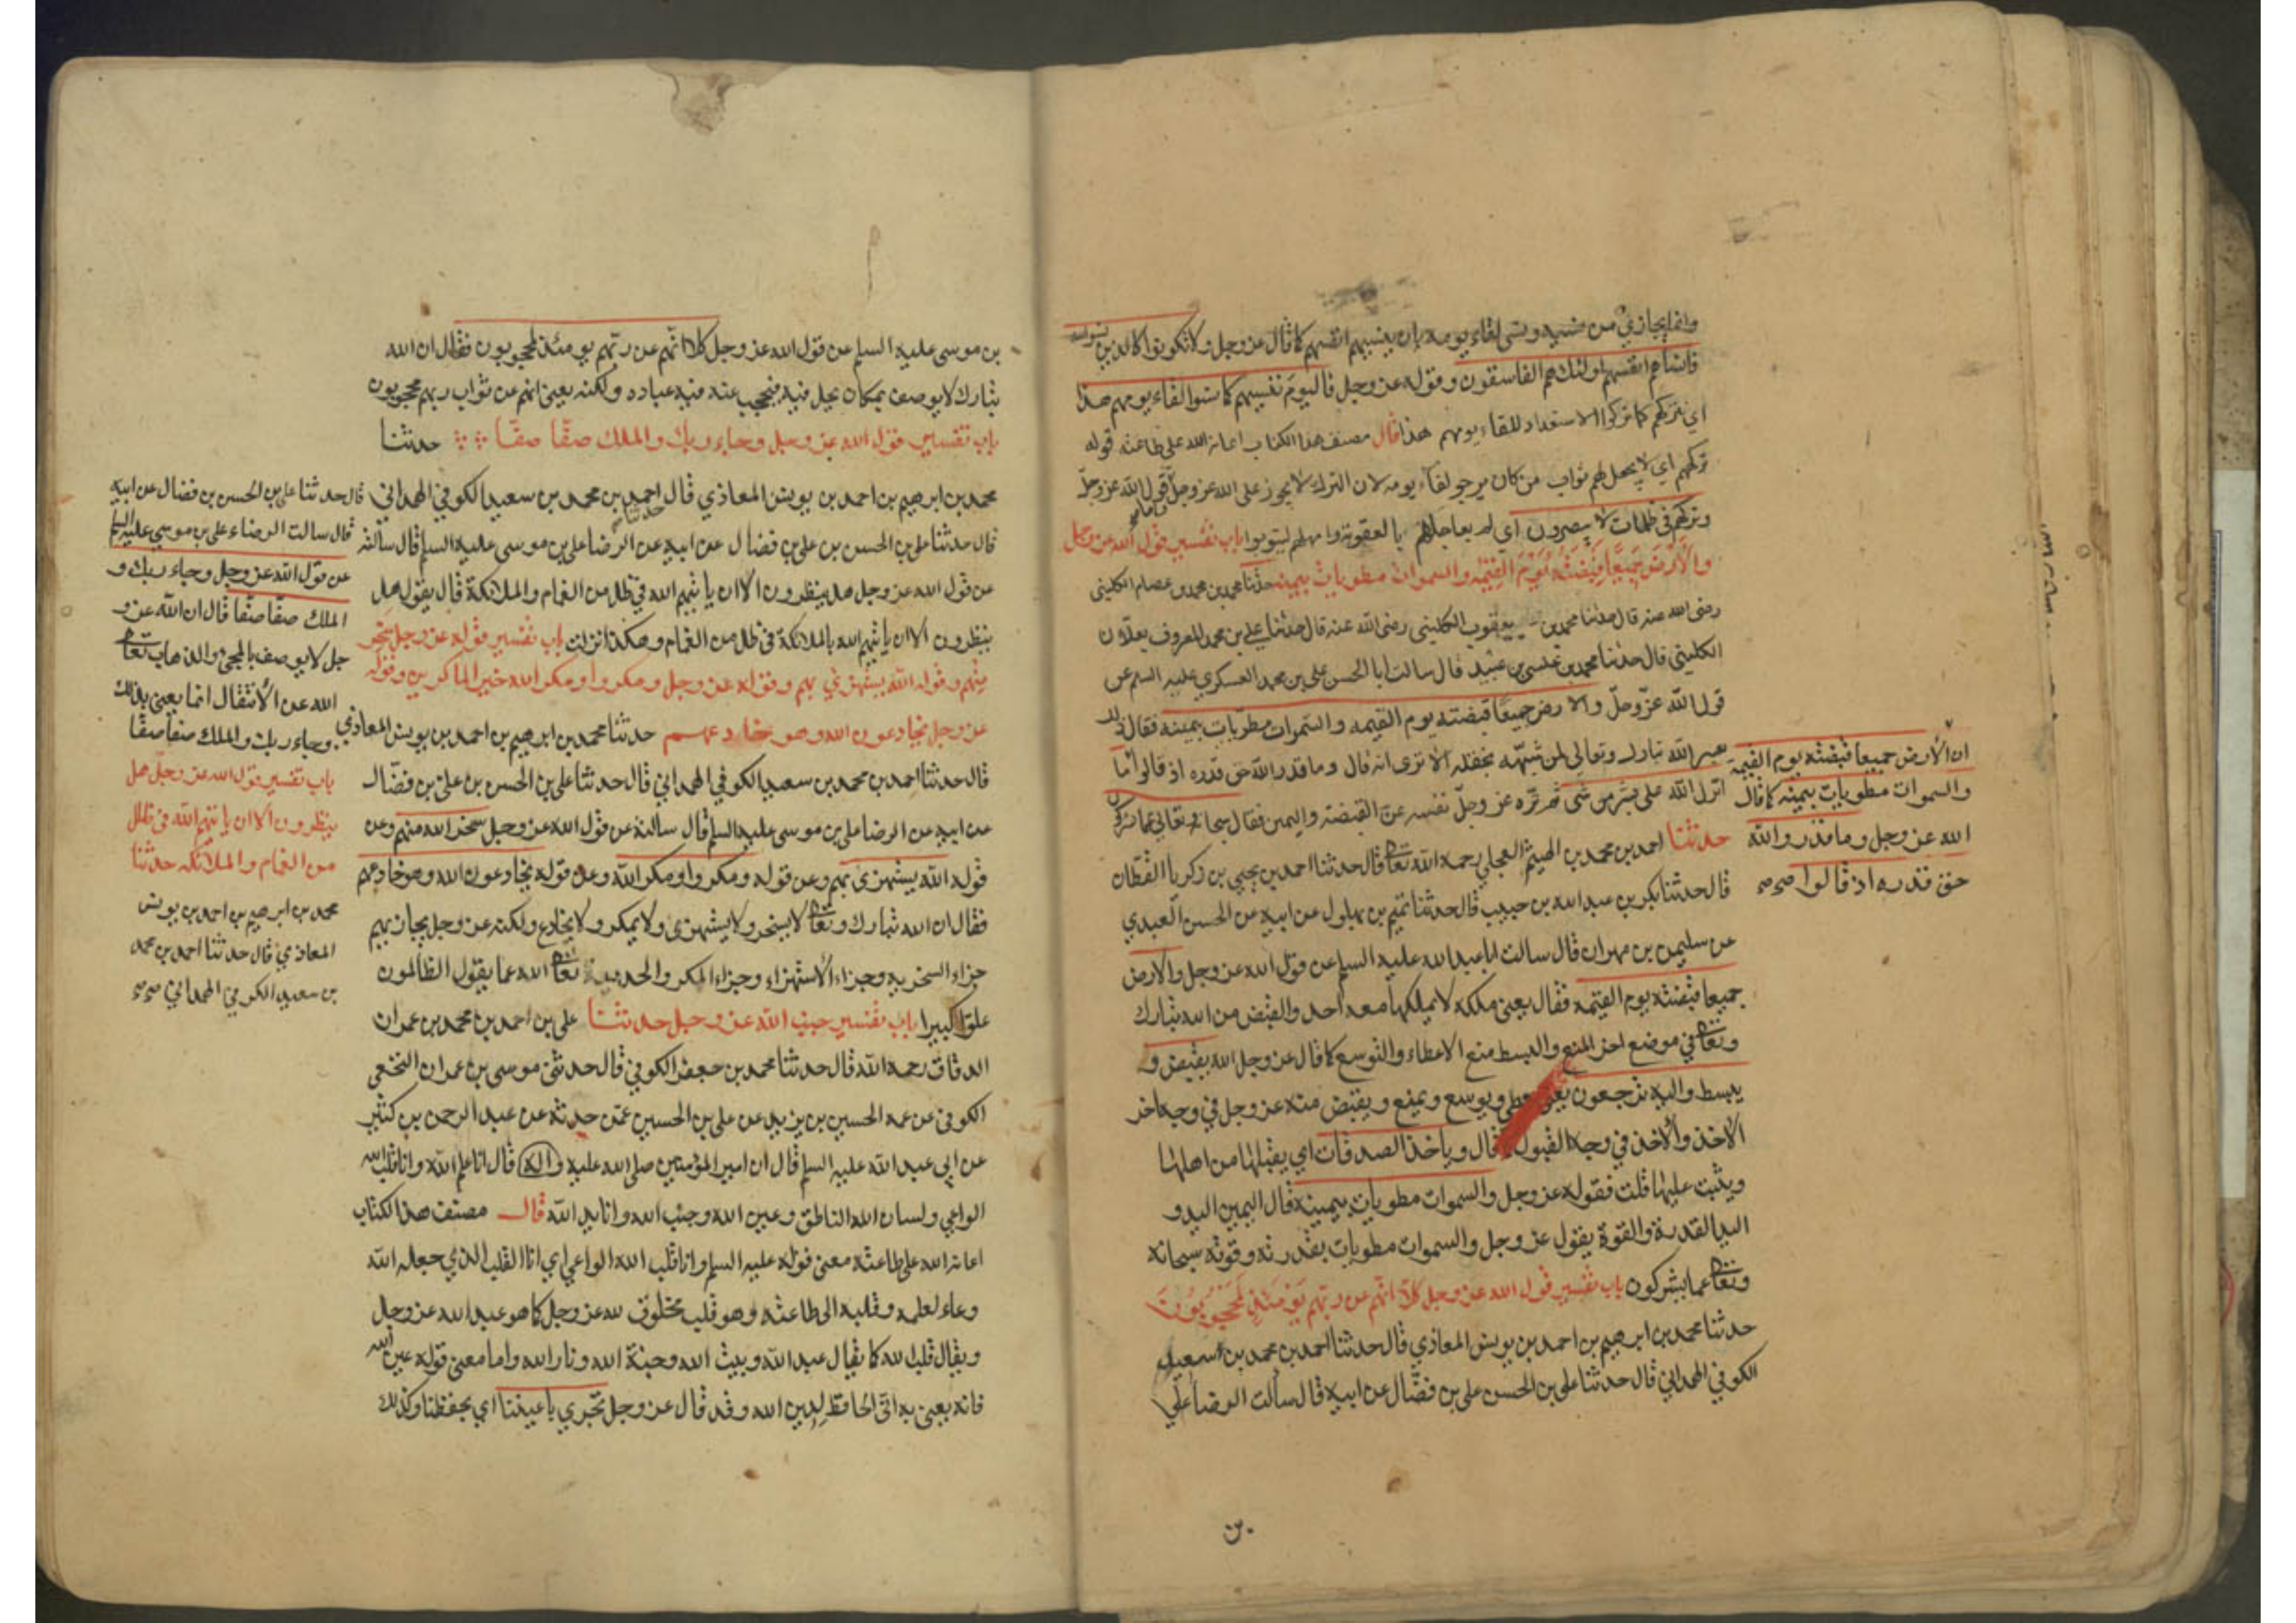 وانما يجازي من نسيه ونسي لقاء يومه بان ينسيهم انفسهم كما قال عز وجل ولا تكونوا كالذين نسوا الله
فانساهم انفسهم اولئك هم الفاسقون وقوله عز وجل فاليوم ننسيهم كما نسوا لقاء يومهم هذا
اي نتركهم كما تركوا الاستعداد للقاء يومهم هذا قال مصنف هذا الكتاب اعانه الله على طاعته قوله
نتركهم اي لا يجعل لهم ثواب من كان يرجو لقاء يومه لان الترك لا يجوز على الله عز وجل فقول الله عز وجل
وتركهم في ظلمات لا يبصرون اي لم يعاجلهم بالعقوبة وامهلهم ليتوبوا باب تفسير قول الله عز وجل
والارض جميعا قبضته يوم القيمة والسموات مطويات بيمينه حدثنا محمد بن محمد بن عصام الكليني
رضى الله عنه قال حدثنا محمد بن يعقوب الكليني رضى الله عنه قال حدثنا علي بن محمد المعروف بعلان
الكليني قال حدثنا محمد بن عيسى بن عبيد قال سالت ابا الحسن علي بن محمد العسكري عليه السلم عن
قول الله عز وجل والارض جميعا قبضته يوم القيمه والسموات مطويات بيمينه فقال ذلك
تعيير الله تبارك وتعالى لمن شبهه بخلقه الا ترى انه قال وما قدروا الله حق قدره اذ قالوا ما
انزل الله على بشر من شى ثم نزه عز وجل نفسه عن القبضة واليمين فقال سبحانه وتعالى عما يشركون
حدثنا احمد بن محمد بن الهيثم العجلي رحمه الله تعالى قال حدثنا احمد بن يحيى بن زكريا القطان
قال حدثنا بكر بن عبد الله بن حبيب قال حدثنا تميم بن بهلول عن ابيه عن الحسن العبدي
عن سليمن بن مهران قال سالت ابا عبد الله عليه السلم عن قول الله عز وجل والارض
جميعا قبضته يوم القيمه فقال يعني ملكه لا يملكها معه احد والقبض من الله تبارك
وتعالى في موضع اخر المنع والبسط منع الاعطاء والتوسع كما قال عز وجل الله يقبض و
يبسط واليه ترجعون يعني يعطي ويوسع ويمنع ويقبض منه عز وجل في وجه اخر
الاخذ والاخذ في وجه القبول قال وياخذ الصدقات اي يقبلها من اهلها
ويثيب عليها قلت فقوله عز وجل والسموات مطويات بيمينه قال اليمين اليد و
اليد القدرة والقوة يقول عز وجل والسموات مطويات بقدرته وقوته سبحانه
وتعالى عما يشركون باب تفسير قول الله عز وجل كلا انهم عن ربهم يومئذ لمحجوبون
حدثنا محمد بن ابرهيم بن احمد بن يونس المعاذي قال حدثنا احمد بن محمد بن سعيد
الكوفي الهمداني قال حدثنا علي بن الحسن علي بن فضال عن ابيه قال سألت الرضا علي
ان الأرض جميعا قبضته يوم القيمة
والسموات مطويات بيمينه كما قال
الله عز وجل وما قدروا الله
حق قدره اذ قالوا صح صح
بن موسى عليه السلم عن قول الله عز وجل كلا انهم عن ربهم يومئذ لمحجوبون فقال ان الله
تبارك لا يوصف بمكان يحل فيه فيحجب عنه فيه عباده ولكنه يعني انهم عن ثواب ربهم محجوبون
باب تفسير قول الله عز وجل وجاء ربك والملك صفا صفا حدثنا
محمد بن ابرهيم بن احمد بن يونس المعاذي قال احمد بن محمد بن سعيد الكوفي الهمداني
حدثنا
قال حدثنا علي بن الحسن بن علي بن فضال عن ابيه عن الرضا علي بن موسى عليه السلم قال سالته
عن قول الله عز وجل هل ينظرون الا ان ياتيهم الله في ظلل من الغمام والملائكة قال يقول هل
ينظرون الا ان ياتيهم الله بالملائكة في ظلل من الغمام وهكذا نزلت باب تفسير قوله عز وجل سخر
منهم وقوله الله يستهزئ بهم وقوله عز وجل ومكروا ومكر الله خير الماكرين وقوله
عز وجل يخادعون الله وهو خادعهم حدثنا محمد بن ابرهيم بن احمد بن يونس المعاذي
قال حدثنا احمد بن محمد بن سعيد الكوفي الهمداني قال حدثنا علي بن الحسن بن علي بن فضال
عن ابيه عن الرضا علي بن موسى عليه السلم قال سالته عن قول الله عز وجل سخر الله منهم وعن
قوله الله يستهزى بهم وعن قوله ومكروا ومكر الله وعن قوله يخادعون الله وهو خادعهم
فقال ان الله تبارك وتعالى لا يسخر ولا يستهزى ولا يمكر ولا يخادع ولكنه عز وجل يجازيهم
جزاء السخريه وجزاء الأستهزاء وجزاء المكر والخديعة تعالى الله عما يقول الظالمون
علوا كبيرا باب تفسير جنب الله عز وجل حدثنا علي بن احمد بن محمد بن عمران
الدقاق رحمه الله قال حدثنا محمد بن جعفر الكوفي قال حدثنى موسى بن عمران النخعي
الكوفي عن عمه الحسين بن يزيد عن علي بن الحسين عمن حدثه عن عبد الرحمن بن كثير
عن ابي عبد الله عليه السلم قال ان امير المؤمنين صلى الله عليه واله قال انا علم الله وانا قلب الله
الواعي ولسان الله الناطق وعين الله وجنب الله وانا يد الله قال مصنف هذا الكتاب
اعانه الله على طاعته معنى قوله عليه السلم وانا قلب الله الواعي اي انا القلب الذي جعله الله
وعاء لعلمه وقلبه الى طاعته وهو قلب مخلوق لله عز وجل كما هو عبد الله عز وجل
ويقال قلب الله كما يقال عبد الله وبيت الله وجنة الله ونار الله واما معنى قوله عين الله
فانه يعني به اني الحافظ لدين الله وقد قال عز وجل تجري باعيننا اي بحفظنا وكذلك
قال حدثنا علي بن الحسن بن فضال عن ابيه
قال سالت الرضاء علي بن موسى عليه السلم
عن قول الله عز وجل وجاء ربك و
الملك صفا صفا قال ان الله عز و
جل لا يوصف بالمجئ والذهاب تعالى
الله عن الأنتقال انما يعني بذلك
وجاء ربك والملك صفا صفا
باب تفسير قول الله عز وجل هل
ينظرون الا ان ياتيهم الله في ظلل
من الغمام والملائكه حدثنا
محمد بن ابرهيم بن احمد بن يونس
المعاذي قال حدثنا احمد بن محمد
بن سعيد الكوفي الهمداني صح صح